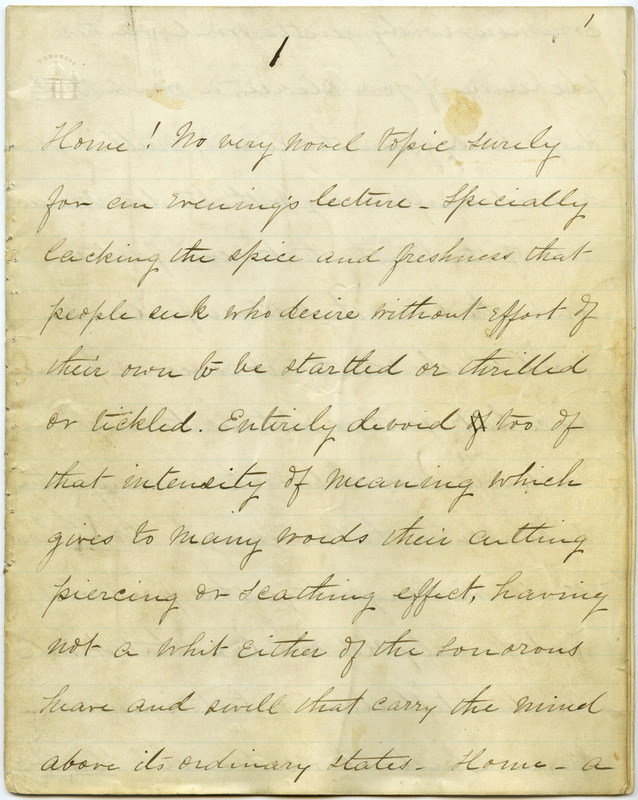 1
1
Home! No very novel topic surely
for an evening's lecture - specially
lacking the spice and freshness that
people seek who desire without effort of
their own to be startled or thrilled
or tickled. Entirely devoid of too of
that intensity of meaning which
gives to many words their cutting
piercing or scathing effect, having
not a whit either of the sonorous
heave and swell that carry the mind
above its ordinary states - Home - a